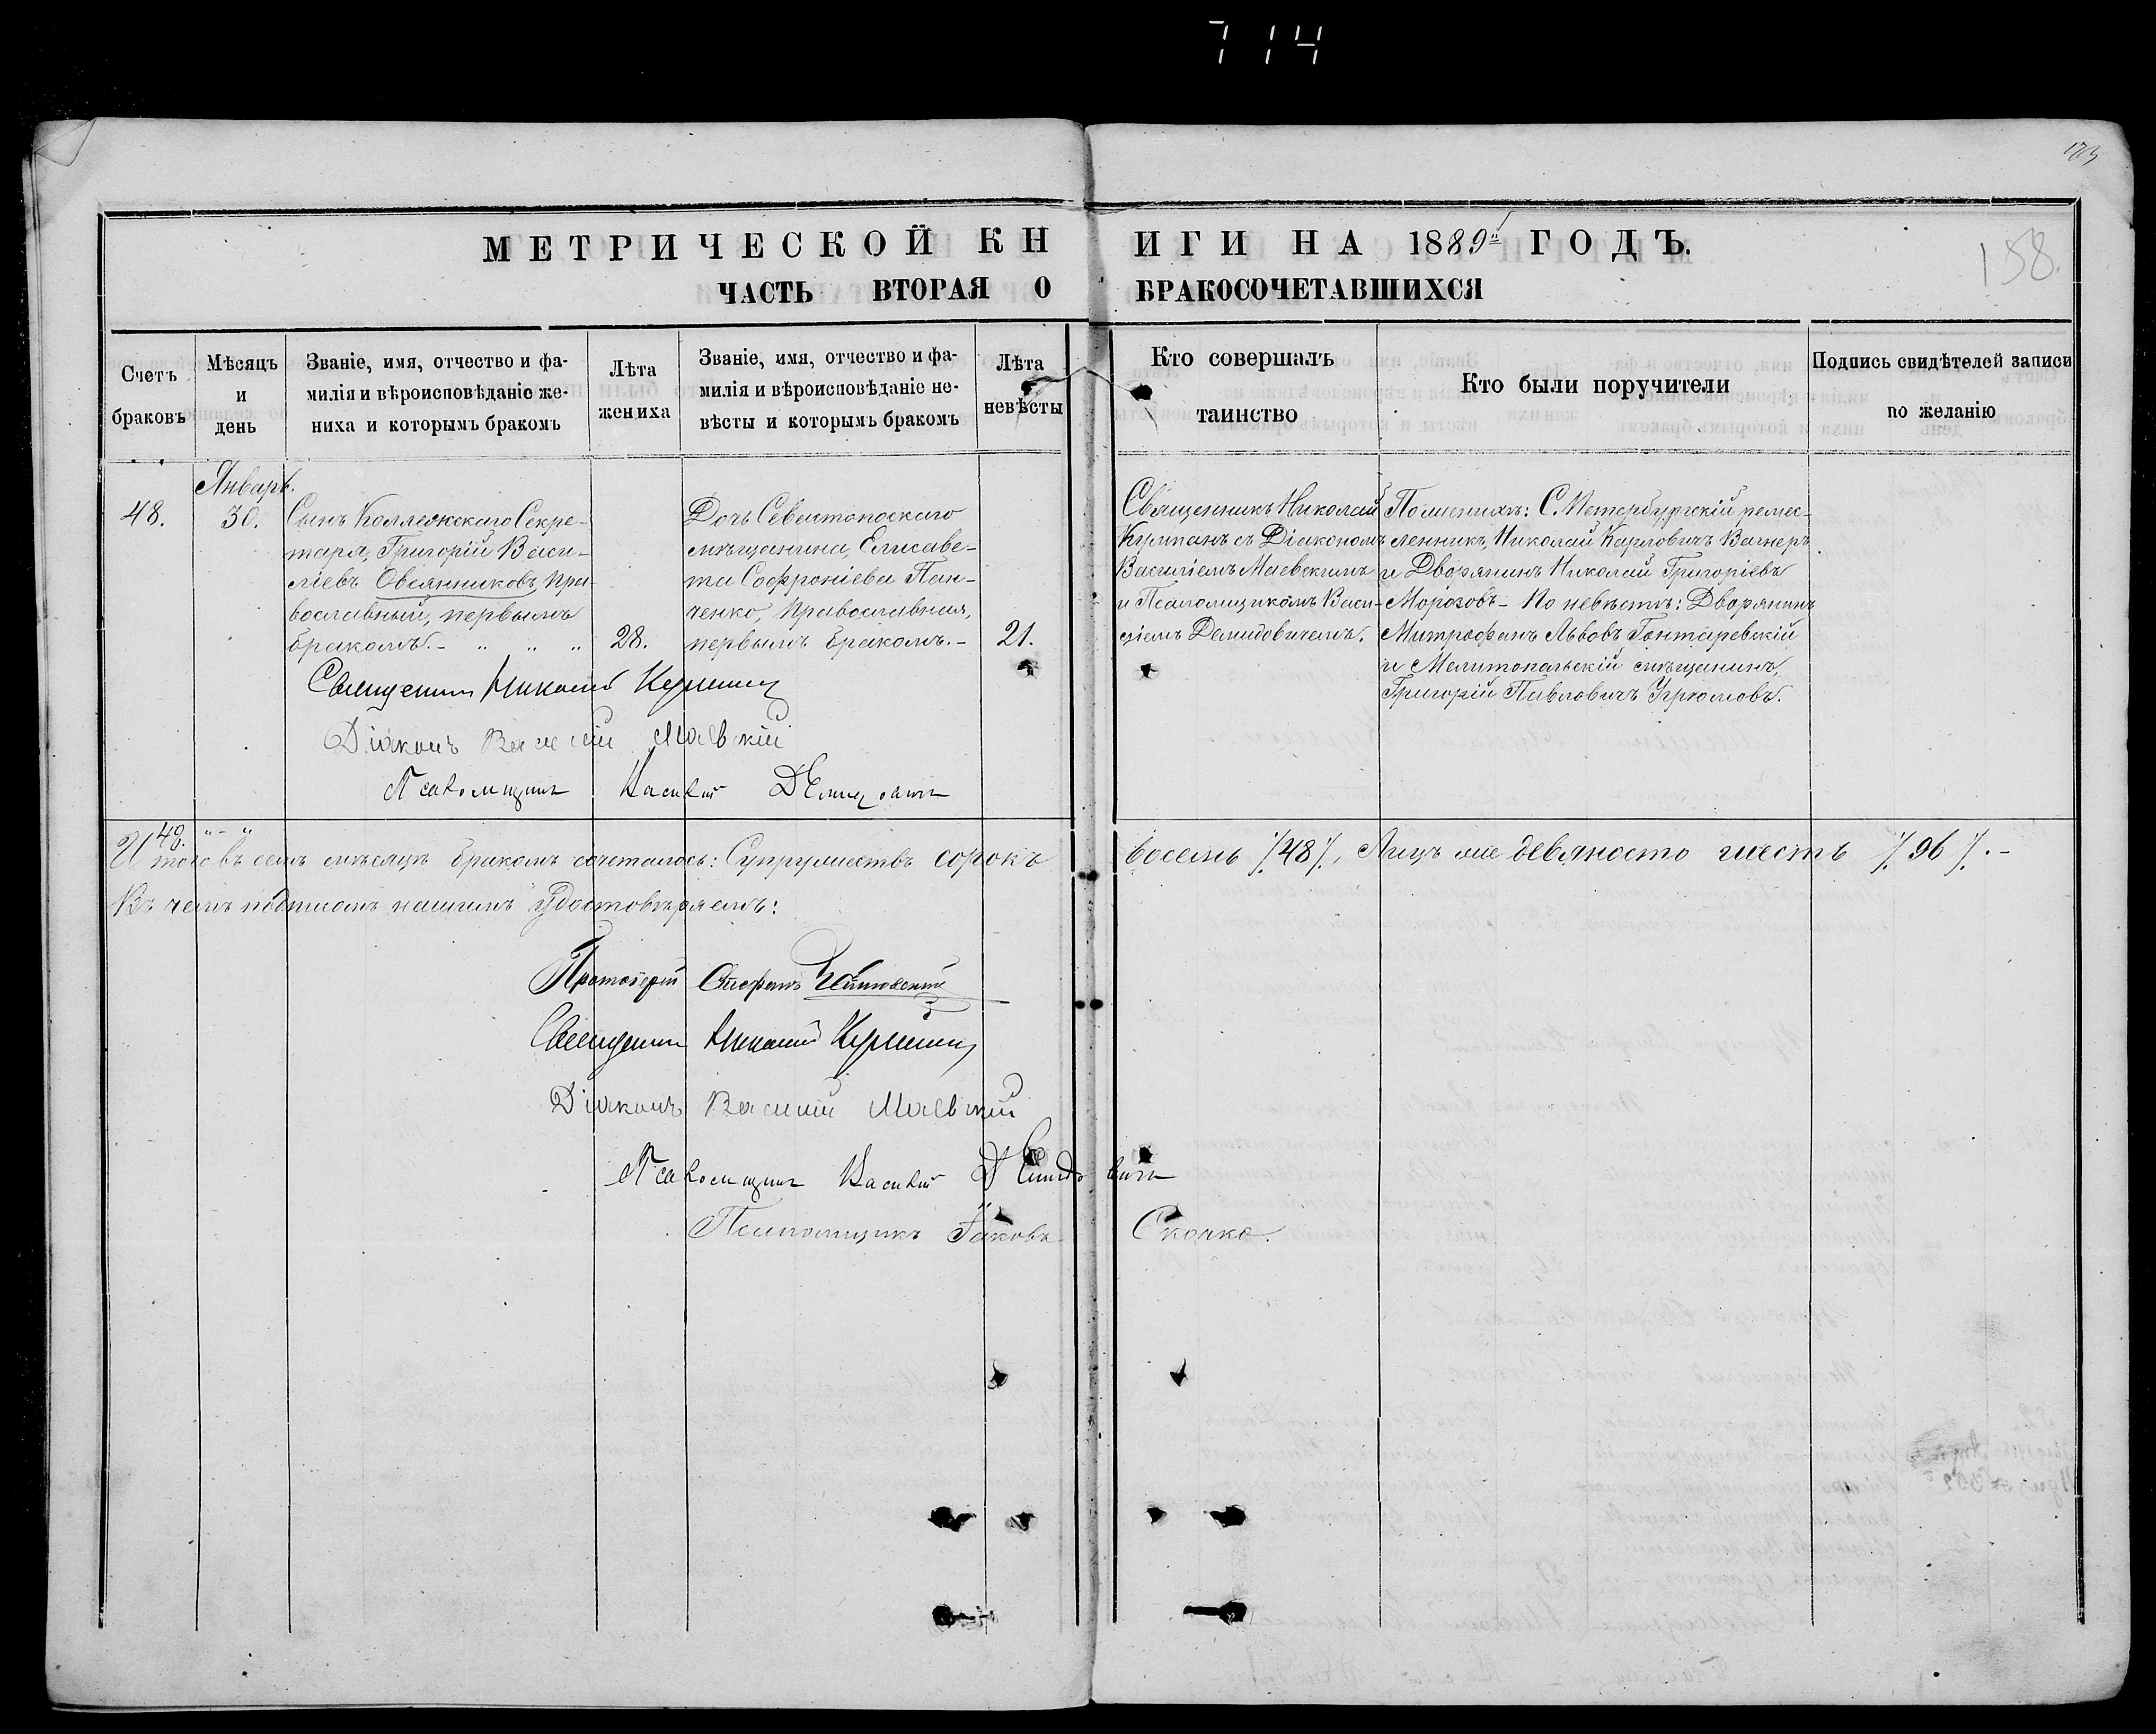 714
183
158.
МЕТРИЧЕСКОЙ КНИГИ НА 1889й ГОДЪ.
ЧАСТЬ ВТОРАЯ О БРАКОСОЧЕТАВШИХСЯ
Счетъ
браковъ
Мѣсяцъ
и
день
Званіе, имя, отчество и фа-
милія и вѣроисповѣданіе же-
ниха и которымъ бракомъ
Лѣта
жениха
Званіе, имя, отчество и фа-
милія и вѣроисповѣданіе не-
вѣсты и которымъ бракомъ
Лѣта
невѣсты
Кто совершалъ
таинство
Кто были поручители
Подпись свидѣтелей записи
по желанію
48.
Январь.
30.
Сынъ Коллежскаго Секре-
таря, Григорій Васи-
ліевъ Овсянниковъ, пра-
вославный, первымъ
бракомъ.- " " "
28.
Дочь Севастопоскаго
мѣщанина, Елисаве-
та Софроніева Пан-
ченко, православная,
первымъ бракомъ.-
21.
Священникъ Николай
Курпанъ съ Діакономъ
Василіемъ Маевскимъ
и Псаломщикомъ Васи-
ліемъ Демидовичемъ.
По женихѣ: С. Петербургскій ремес-
ленникъ, Николай Карловичъ Вагнеръ
и Дворянинъ Николай Григоріевъ
Морозовъ- По невѣстѣ: Дворянинъ
Митрофанъ Львовъ Гонтаревскій
и Мелитопольскій мѣщанинъ,
Григорій Павловичъ Угрюмовъ.
Священникъ Николай
Діаконъ Василій Маевскій
Псаломщикъ Василій Демидовичъ
48. "-"
Итого въ семъ мѣсяцѣ бракомъ сочеталось: Супружествъ сорокъ восемь /48/, Лицъ же девяносто шесть /96/.-
Въ чемъ подписомъ нашимъ удостовѣряемъ:
Протоіерей Стефанъ
Священникъ Николай
Діаконъ Василій Маевскій
Псаломщикъ Василій Демидовичъ
Псаломщикъ Іаковъ Скочко.